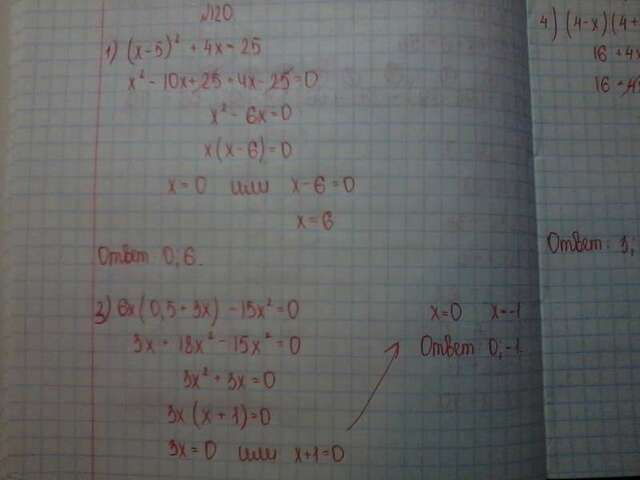 №120
1) (x-5)² + 4x = 25
x² - 10x + 25 + 4x - 25 = 0
x² - 6x = 0
x(x-6) = 0
x = 0 или x-6 = 0
x = 6
Ответ 0; 6.
2) 6x(0,5 + 3x) - 15x² = 0
3x + 18x² - 15x² = 0
3x² + 3x = 0
3x(x+1) = 0
3x = 0 или x+1 = 0
x=0 x=-1
Ответ 0; -1.
4) (4-x)(4+
16 + 4x
16
Ответ: 3;